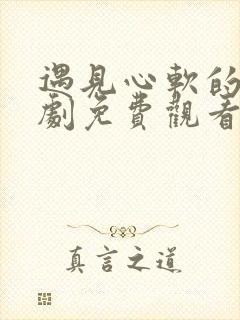 遇見心軟的
劇免費觀看
真言之道